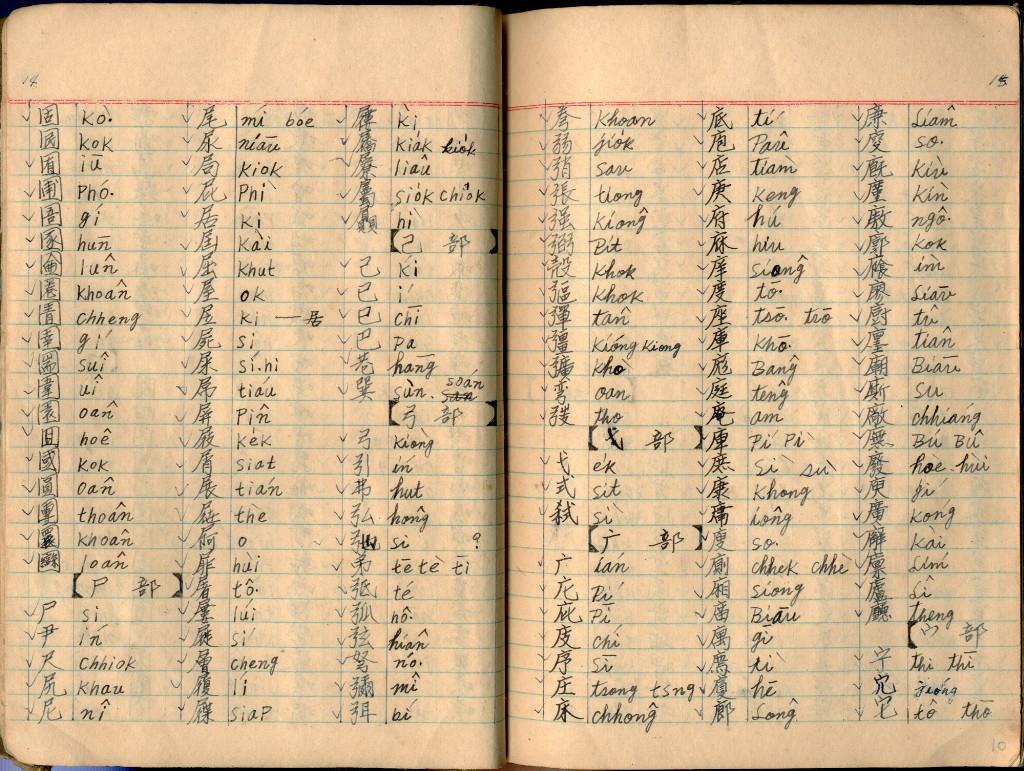 14
固 kò͘
囻 kok
囿 iū
圃 Phó͘
圄 gí
圂 hūn
圇 luân
圈 khoân
圊 chheng
圉 gí
圌 suî
圍 uî
園 oân
回 hoê
國 kok
圓 oân
團 thoân
圜 khoân
圞 loân
尸 部
尸 si
尹 ín
尺 chhiok
尻 khau
尼 nî
尾 mí bóe
尿 niāu
局 kiok
屁 Phì
居 ki
屆 Kài
屈 khut
屋 ok
ki 一 居
屍 si
屎 sí. hi
屌 tiáu
屏 Pîn
屐 kek
屑 siat
展 tián
the
o
屝 hùi
屠 tô͘
屢 lúi
屣 sí
層 cheng
履 lí
屧 siaP
kì
kiák kiók
liâu
siók chiók
hì
己 部
己 kí
已 í
巳 chī
巴 pa
巷 hāng
巽 sùn. soán
弓 部
弓 kiong
引 ín
弗 hut
弘 hông
si ?
弟 tē tè tī
弤 té
弧 hô͘
弦 hiân
弩 nó͘
彌 mî
弭 bí
15
弮 khoan
弱 jiók
弰 sau
張 tiong
强 kiông
弼 Pit
彀 khok
彄 khok
彈 tân
彊 kióng kiong
彍 kho
彎 oan
弢 tho
弋 部
弋 ék
式 sit
弑 sì
广 部
广 ián
庀 Pí
庇 Pì
庋 chí
序 sī
庄 tsong tsng
床 chhông
底 tí
庖 Pâu
店 tiàm
庚 keng
府 hú
庥 hiu
庠 siông
度 tō͘
座 tso. tsō
庫 khò͘
庬 Bâng
庭 têng
庵 am
庳 Pí Pì
庶 sì sù
康 khong
庸 iông
廋 so͘
廁 chhek chhè
廂 siong
庿 Biāu
gī
tì
廈 hē
廊 Lông
廉 Liâm
廋 so͘
廄 kiù
廑 kìn
廒 ngô͘
廓 kok
im
廖 Liāu
廚 tû
廛 tiân
廟 Biāu
廝 su
廠 chhiáng
廡 Bú Bû
廢 hòe. hùi
庾 jí
廣 kóng
廨 kài
廩 Lím
廬 Lî
廳 theng
宀 部
thì thī
宂 jióng
宅 tô thò
10